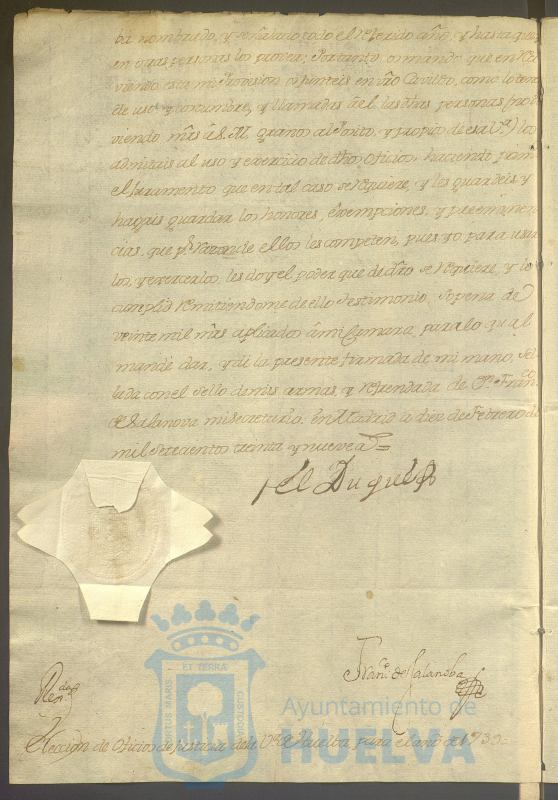 ba nombrado, y señalado todo el referido año, y hasta que
en otras personas los provea; Portanto, os mando que en Re
viendo esta mi Provision os junteis en vro Cavildo, como lo teneis
de uso, y costumbre, y llamadas á el las dhas personas (no de
viendo mrs á S.M. granos al Posito, y propios de esa Va) los
admitais al uso y exercicio de dhos oficios haciendo primero
el Juramento que en tal caso se requiere, y les guardeis y
hagais guardar los honores, exempciones, y preeminen
cias, que pr razon de ellos les competen, pues yo para usar
los, y exercerlos, les doy el poder que de dro se requiere, y lo
cumplid remitiendome de ello Testimonio, so pena de
veinte mil mrs aplicados á mi Camara, para lo qual
mandé dar, y di la presente firmada de mi mano, Se
llada con el sello de mis armas, y refrendada de Dn Franco
de Salanova mi secretario. En Madrid a diez de Febrero de
mil setecientos treinta y nueve as=
El Duque
Franco de Salanova
Renda
Eleccion de Oficios de Justicia de la Va de Huelba para el año de 1739=
ET TERRÆ
PORTUS MARIS
CUSTODIA
Ayuntamiento de
HUELVA